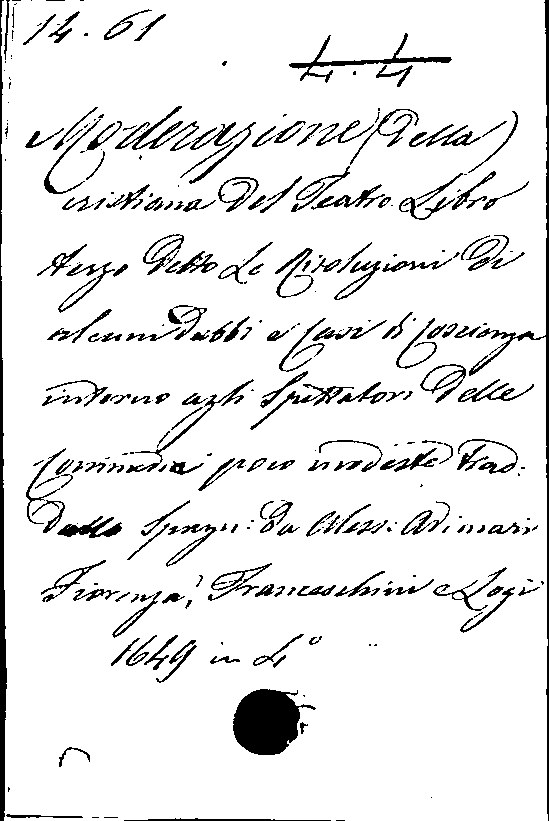 14. 61
4. 4
Moderazione (Della)
cristiana Del Teatro Libro
terzo Detto Le Risoluzioni Di
alcuni Dubbi e Casi di Coscienza
intorno agli Spettatori Delle
Commedie poco modeste trad:
Dallo Spagn: Da Aless: Adimari
Fiorenza, Franceschini e Logi
1649 in 4°